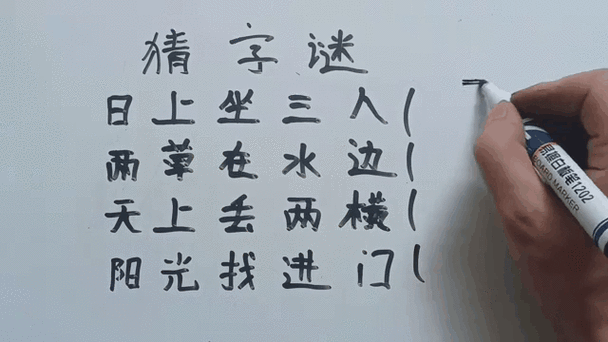 猜字谜
日上坐三人(
两草在水边(
天上丢两横(
阳光找进门(
BOARD MARKER